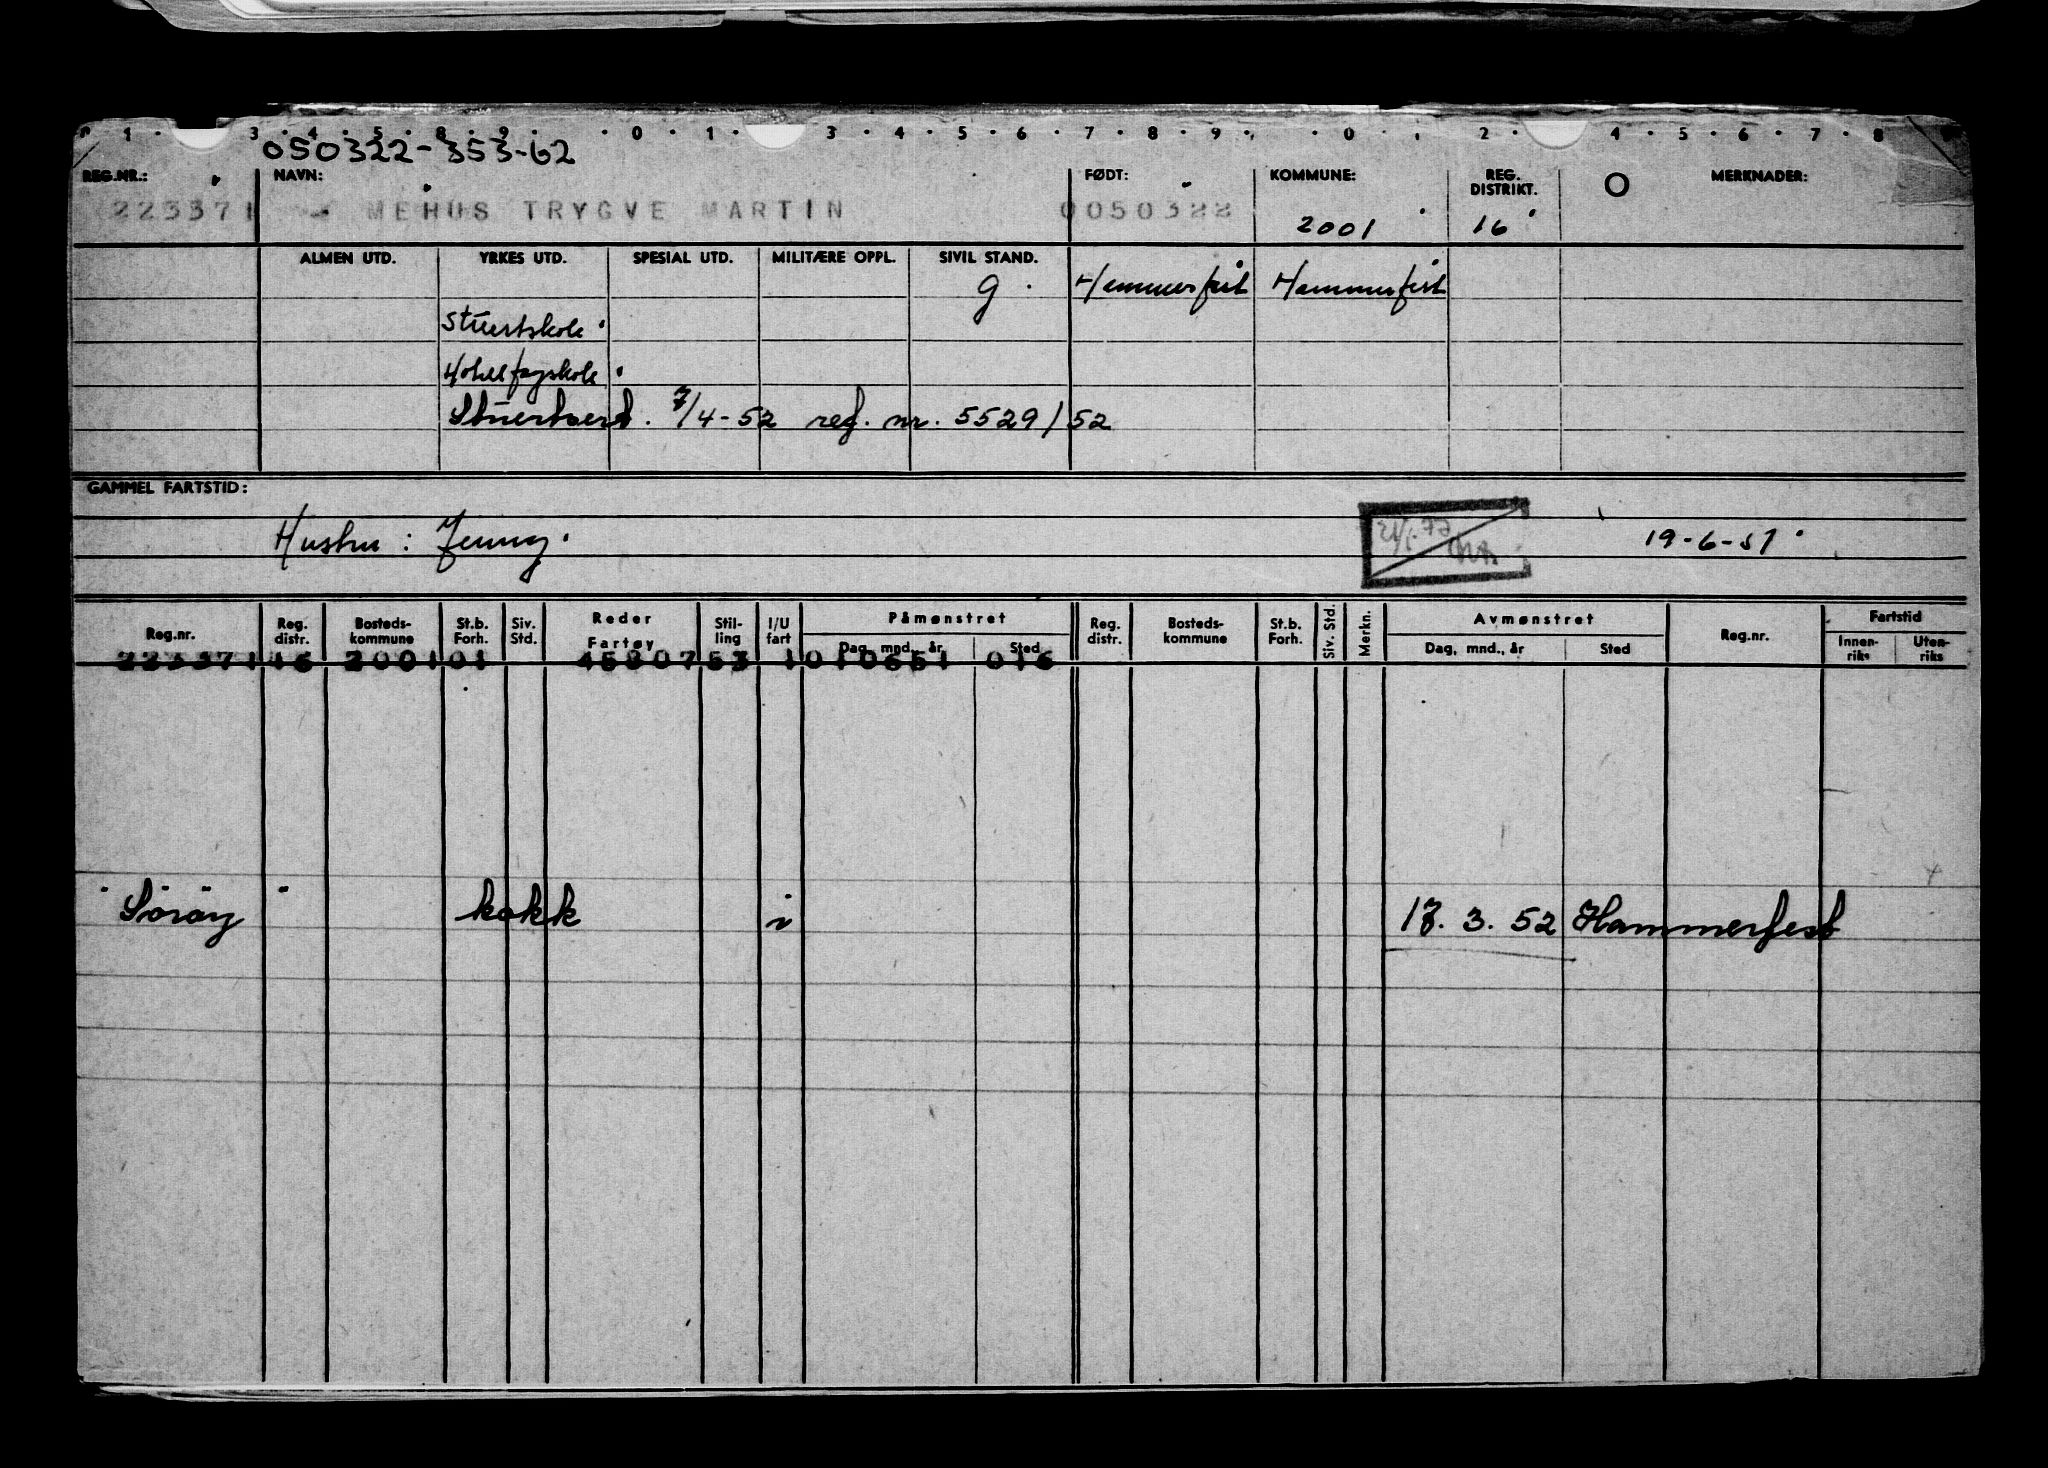 1 · 3 · 4 · 5 · 8 · 9 · · 0 · 1 · 3 · 4 · 5 · 6 · 7 · 8 · 9 · · 0 · 2 · 4 · 5 · 6 · 7 · 8
050322-353-62
REG.NR.: NAVN: FØDT: KOMMUNE: REG. DISTRIKT. O MERKNADER:
223371 MEHUS TRYGVE MARTIN 0050322 2001 16
ALMEN UTD. YRKES UTD. SPESIAL UTD. MILITÆRE OPPL. SIVIL STAND.
g Hammerfest Hammerfest
Stuertskole
Hotellfagskole
Stuertsert. 7/4-52 reg. nr. 5529/52
GAMMEL FARTSTID:
Hustru: Jenny. 19-6-51
Reg.nr. Reg. distr. Bosteds- kommune St.b. Forh. Siv. Std. Reder Fartøy Stil- ling I/U fart Påmønstret Dag, mnd., år Sted Reg. distr. Bosteds- kommune St.b. Forh. Siv. Std. Merkn. Avmønstret Dag, mnd., år Sted Reg.nr. Fartstid Innen- riks Uten- riks
223371 16 2001 01 45307 53 1 010651 016
"Söröy" kokk i 17. 3. 52 Hammerfest